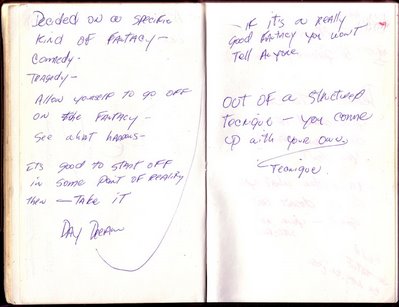 Decided on a specific
kind of Fantacy -
Comedy -
Tragedy -
Allow yourself to go off
on the Fantacy -
See what happens -
Its good to start off
in some part of reality
then - Take it
Day Dream
- If it's a really
good Fantacy you won't
Tell Anyone.
OUT OF a structured
Tecnique - you come
up with your own
Tecnique.